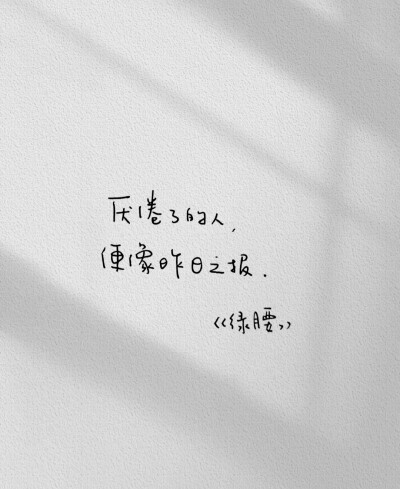 厌倦了的人，
便像昨日之报．
《绿腰》